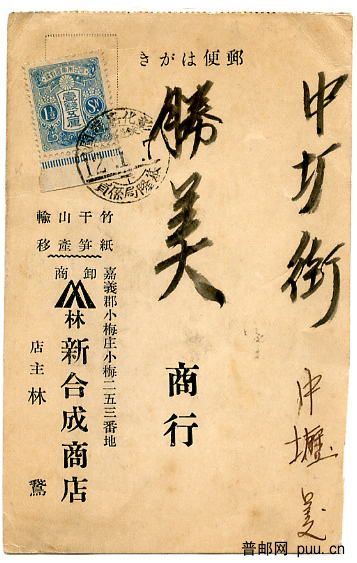 郵便はがき
壹錢五厘
1½ Sn
12.1
中坜街
勝美
商行
中壢
竹紙 干笋 山產 輸移
卸商
嘉義郡小梅庄小梅二五三番地
林 新合成商店
店主 林 鵞
普邮网 puu.cn